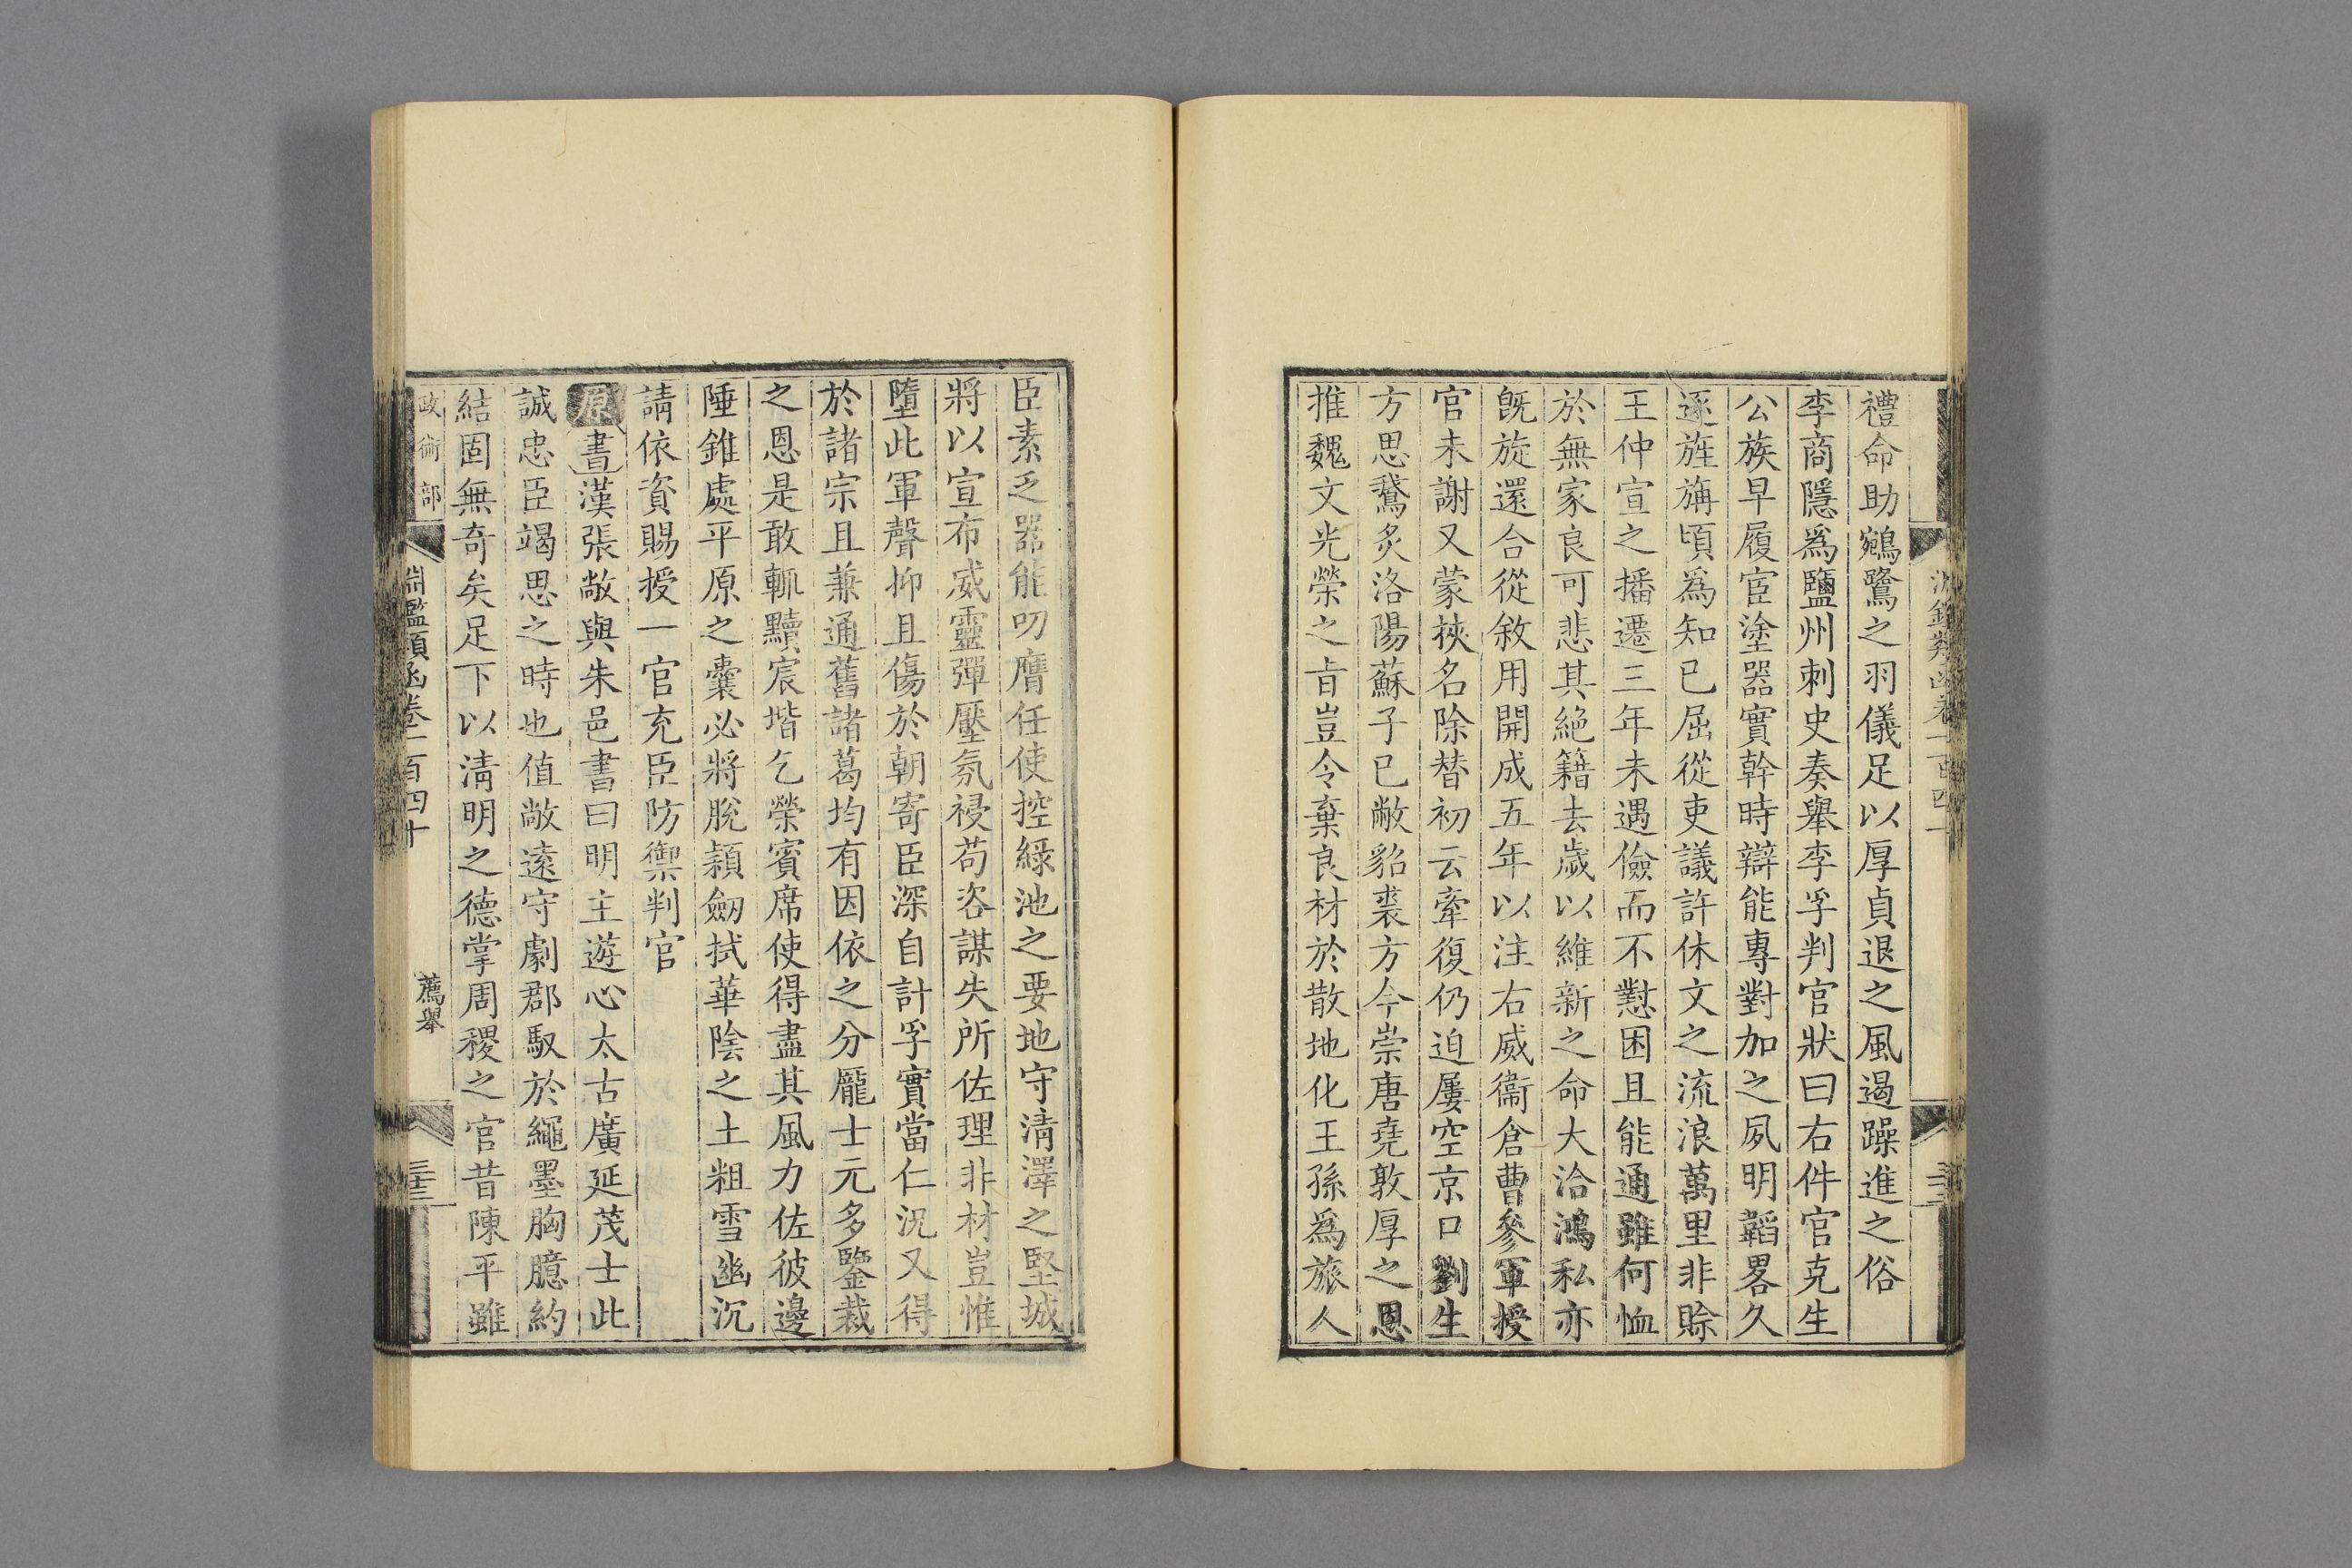 禮命助鵷鷺之羽儀足以厚貞退之風遏躁進之俗
李商隱爲鹽州刺史奏舉李孚判官狀曰右件官克生
公族早履宦塗器實幹時辯能專對加之夙明韜畧久
逐旌旃頃爲知已屈從吏議許休文之流浪萬里非賒
王仲宣之播遷三年未遇儉而不懟困且能通雖何恤
於無家良可悲其絶籍去歲以維新之命大洽鴻私亦
旣旋還合從敘用開成五年以注右威衞倉曹參軍授
官未謝又蒙挾名除替初云牽復仍迫屢空京口劉生
方思鵞炙洛陽蘇子已敝貂裘方今崇唐堯敦厚之恩
推魏文光榮之㫖豈令棄良材於散地化王孫爲旅人
臣素乏器能叨膺任使控緑池之要地守清澤之堅城
將以宣布威靈彈壓氛祲苟咨謀失所佐理非材豈惟
墮此軍聲抑且傷於朝寄臣深自計孚實當仁況又得
於諸宗且兼通舊諸葛均有因依之分龎士元多鑒裁
之恩是敢輒黷宸堦乞榮賓席使得盡其風力佐彼邊
陲錐處平原之囊必將脫穎劒拭華陰之土粗雪幽沉
請依資賜授一官充臣防禦判官
原書漢張敞與朱邑書曰明主遊心太古廣延茂士此
誠忠臣竭思之時也值敞遠守劇郡馭於繩墨胸臆約
結固無奇矣足下以清明之德掌周稷之官昔陳平雖
政術部 淵鑑類函卷一百四十 薦舉 三十三